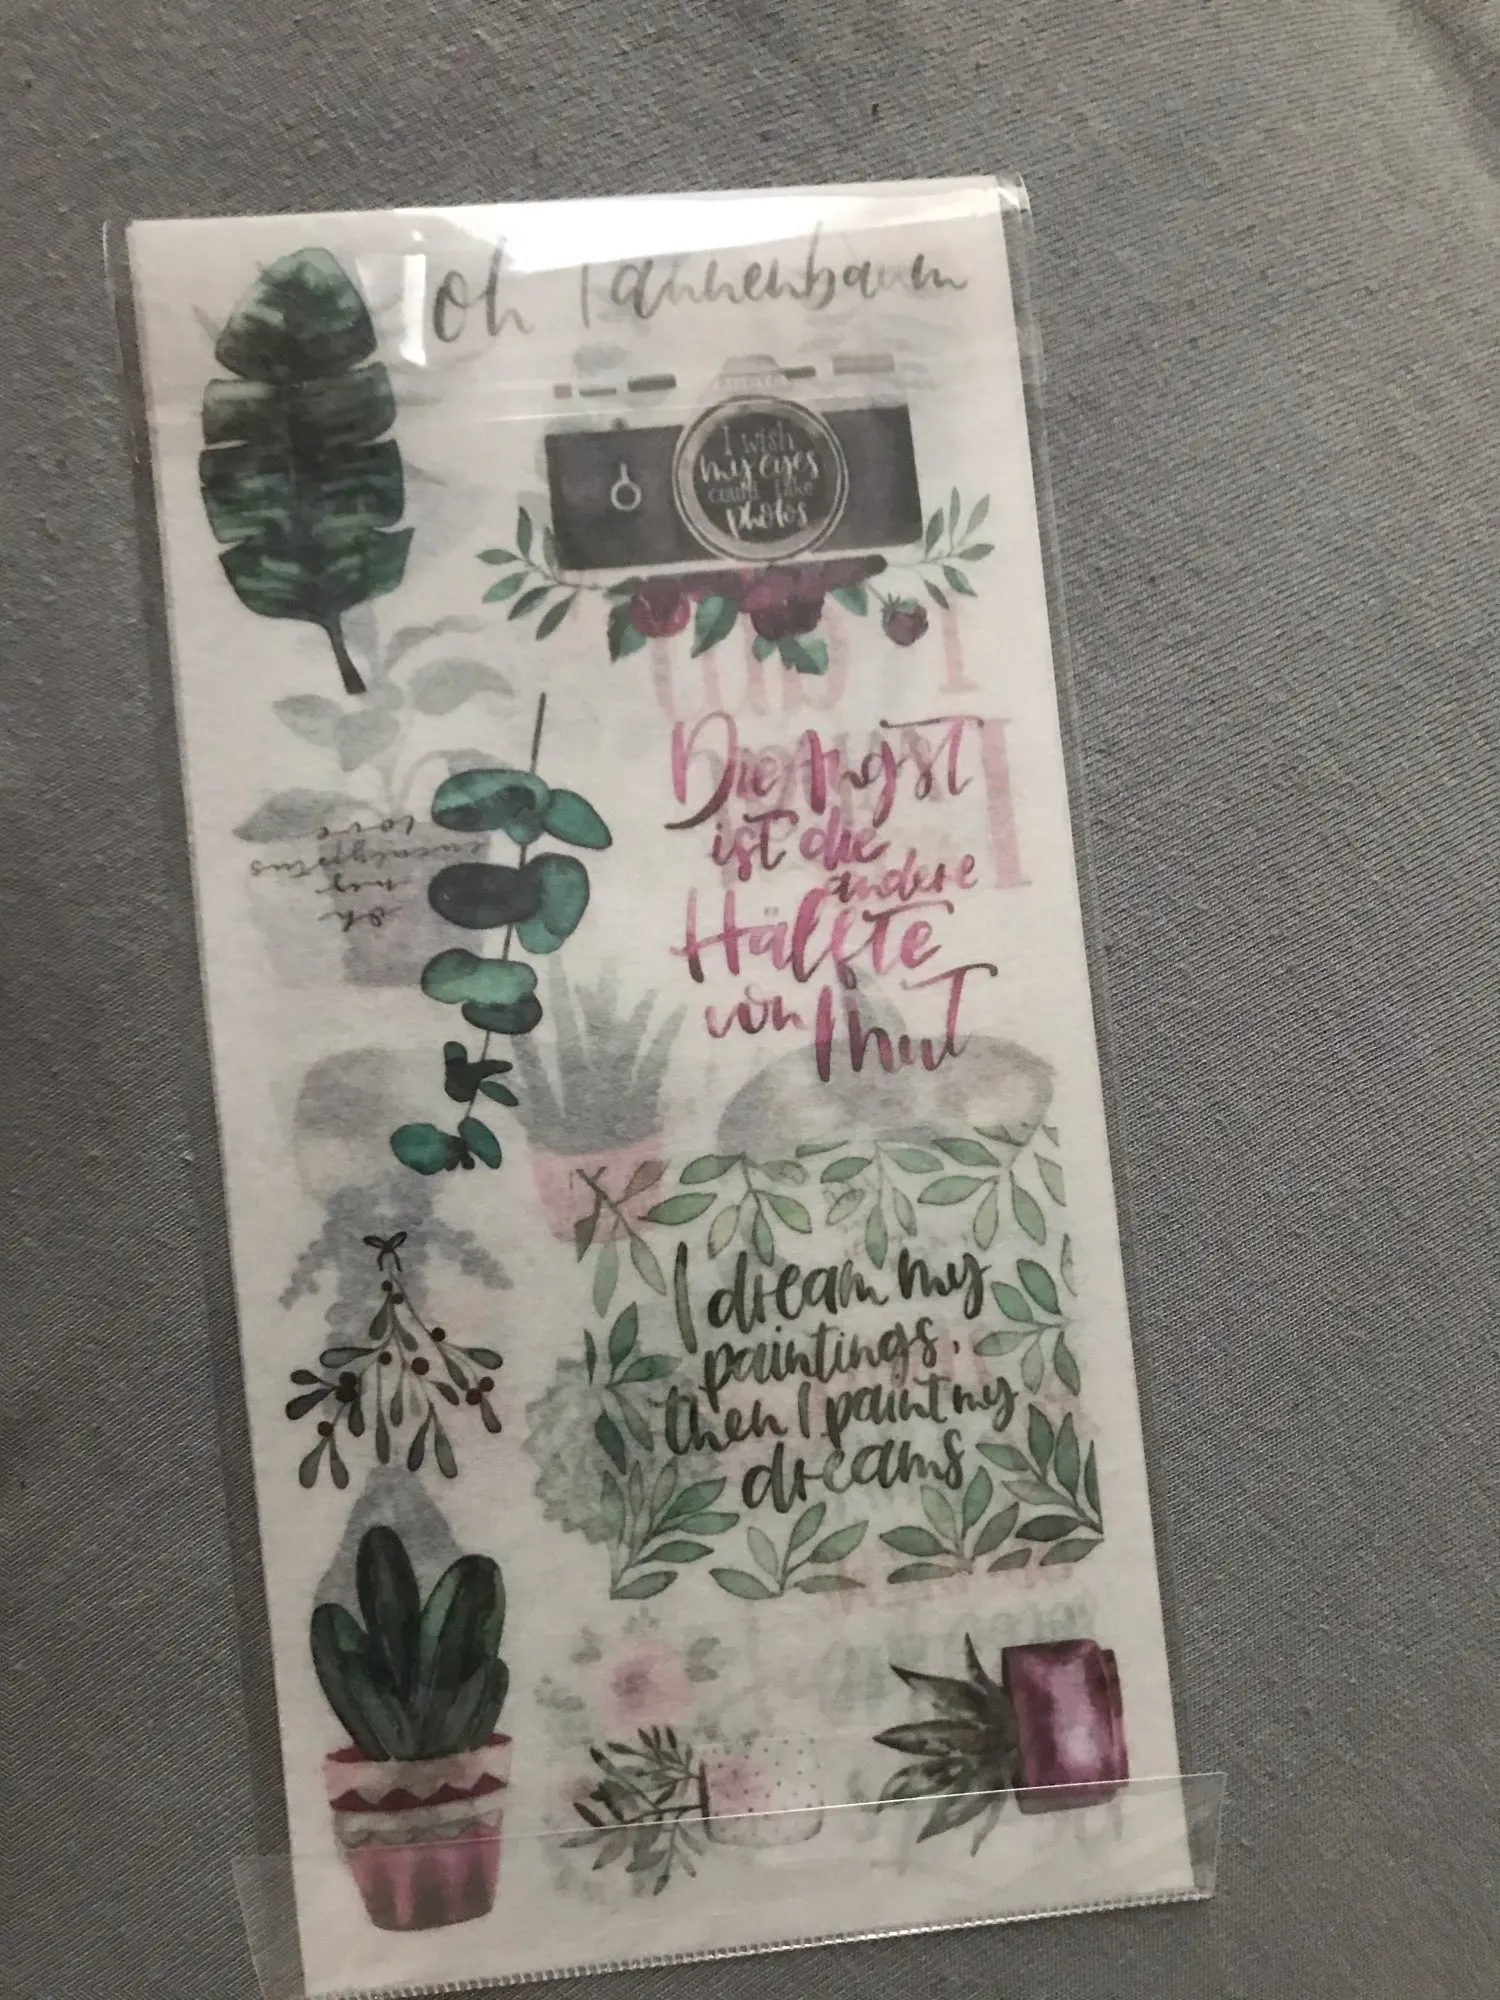 oh Tannenbaum
I wish
my eyes
could take
photos
Die Angst
ist die
andere
Hälfte
von Mut
oh
my
eucalyptus
love
I dream my
paintings,
then I paint my
dreams